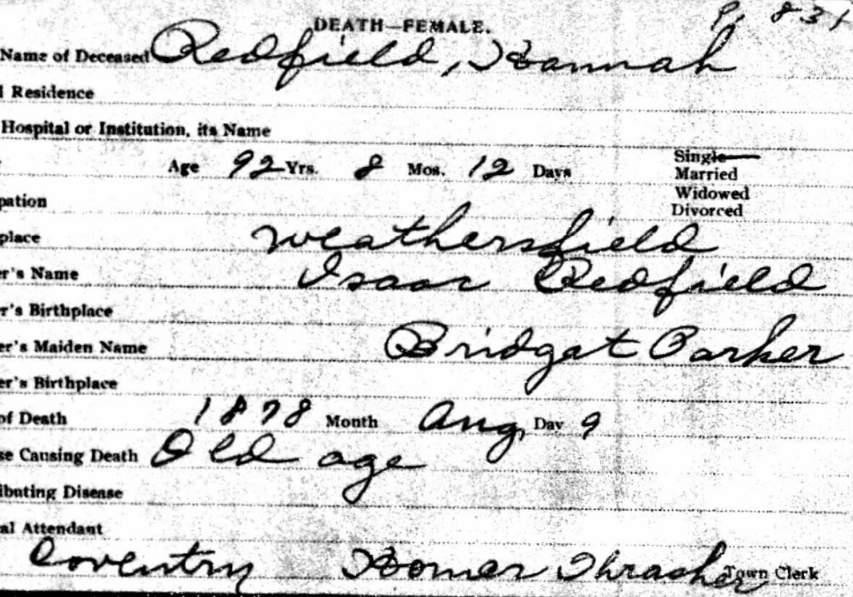 P. 831
DEATH—FEMALE.
Name of Deceased Redfield, Hannah
l Residence
Hospital or Institution, its Name
Age 92 Yrs. 8 Mos. 12 Days
Single
Married
Widowed
Divorced
pation
place Weathersfield
r's Name Isaac Redfield
r's Birthplace
er's Maiden Name Bridget Parker
er's Birthplace
of Death 1878 Month Aug, Day 9
se Causing Death Old age
ibuting Disease
al Attendant
Coventry Homer Thrasher Town Clerk